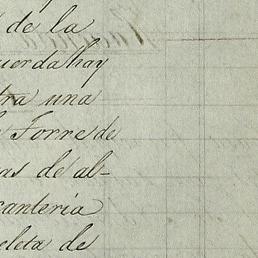 de la
uerda hay
tra una
Torre de
as de al-
cantería
eleta de